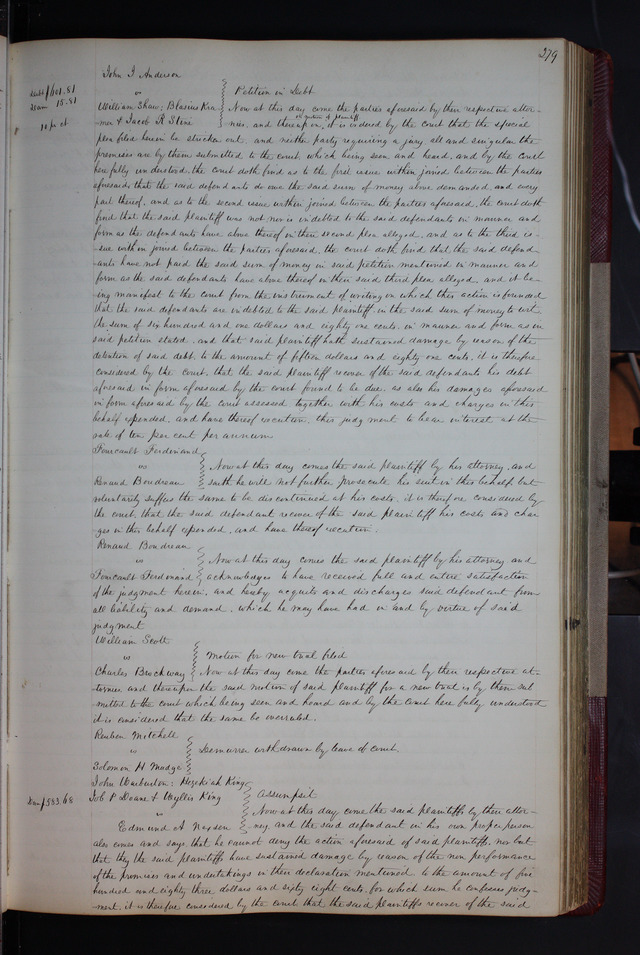 279
John J Anderson
vs
Petition in Debt
debt $601.81
dam 15.81
10 pr ct
William Shaw; Blasius
Now at this day come the parties aforesaid by their respective attor-
mer & Jacob R Stine
on motion of plaintiff
nies, and thereupon, it is ordered by the court that the special
plea filed herein be stricken out, and neither party requiring a jury all and singular the
premises are by them submitted to the court, which being seen and heard, and by the court
here fully understood, the court doth find as to the first issue within joined between the parties
aforesaid, that the said defendants do owe the said sum of money above demanded, and every
part thereof, and as to the second issue within joined between the parties aforesaid, the court doth
find that the said plaintiff was not nor is indebted to the said defendants in manner and
form as the defendants have above thereof in their second plea alleged, and as to the third is-
sue within joined between the parties aforesaid, the court doth find that the said defend-
ants have not paid the said sum of money in said petition mentioned in manner and
form as the said defendants have above thereof in their said third plea alleged, and it be-
ing manifest to the court from the instrument of writing on which this action is founded
that the said defendants are indebted to the said plaintiff in the said sum of money to wit
the sum of six hundred and one dollars and eighty one cents, in manner and form as in
said petition stated, and that said plaintiff hath sustained damage by reason of the
detention of said debt, to the amount of fifteen dollars and eighty one cents, it is therefore
considered by the court, that the said plaintiff recover of the said defendants his debt
aforesaid in form aforesaid by the court found to be due, as also his damages aforesaid
in form aforesaid by the court assessed together with his costs and charges in this
behalf expended, and have thereof execution, this judgment to bear interest at the
rate of ten per cent per annum
Foucault Ferdinand
vs
Now at this day comes the said plaintiff by his attorney, and
Renaud Boudreau
saith he will not further prosecute his suit in this behalf, but
voluntarily suffers the same to be discontinued at his costs, it is therefore considered by
the court, that the said defendant recover of the said plaintiff his costs and char-
ges in this behalf expended, and have thereof execution.
Renaud Boudreau
vs
Now at this day comes the said plaintiff by his attorney and
Foucault Ferdinand
acknowledges to have received full and entire satisfaction
of the judgment herein, and hereby acquits and discharges said defendant from
all liability and demand, which he may have had in and by virtue of said
judgment
William Scott
vs
Motion for new trial filed
Charles Brockway
Now at this day come the parties aforesaid by their respective at-
tornies and thereupon the said motion of said plaintiff for a new trial is by them sub
mitted to the court which being seen and heard and by the Court here fully understood
it is considered that the same be overruled.
Reuben Mitchell
vs
Demurrer withdrawn by leave of court.
Solomon H Mudge
John Warburton; Hezekiah King
Job P Doane & Wyllis King
Assumpsit
dam $583.68
vs
Now at this day come the said plaintiffs by their attor-
Edmund A
ney and the said defendant in his own proper person
also comes and says that he cannot deny the action aforesaid of said plaintiffs, nor but
that they the said plaintiffs have sustained damage by reason of the non performance
of the promises and undertakings in their declaration mentioned to the amount of five
hundred and eighty three dollars and sixty eight cents, for which sum he confesses judg-
ment, it is therefore considered by the court that the said plaintiffs recover of the said